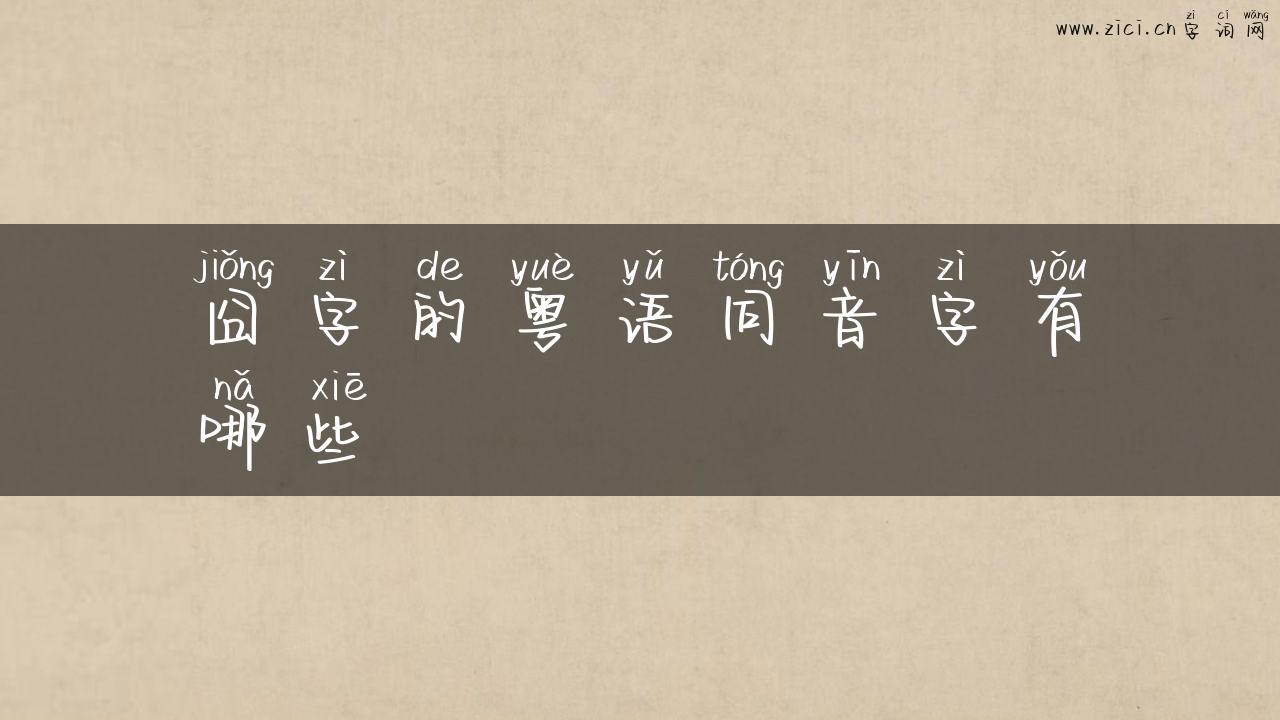 zì cí wǎng
www.zici.cn字词网
jiǒng zì de yuè yǔ tóng yīn zì yǒu
囧字的粤语同音字有
nǎ xiē
哪些